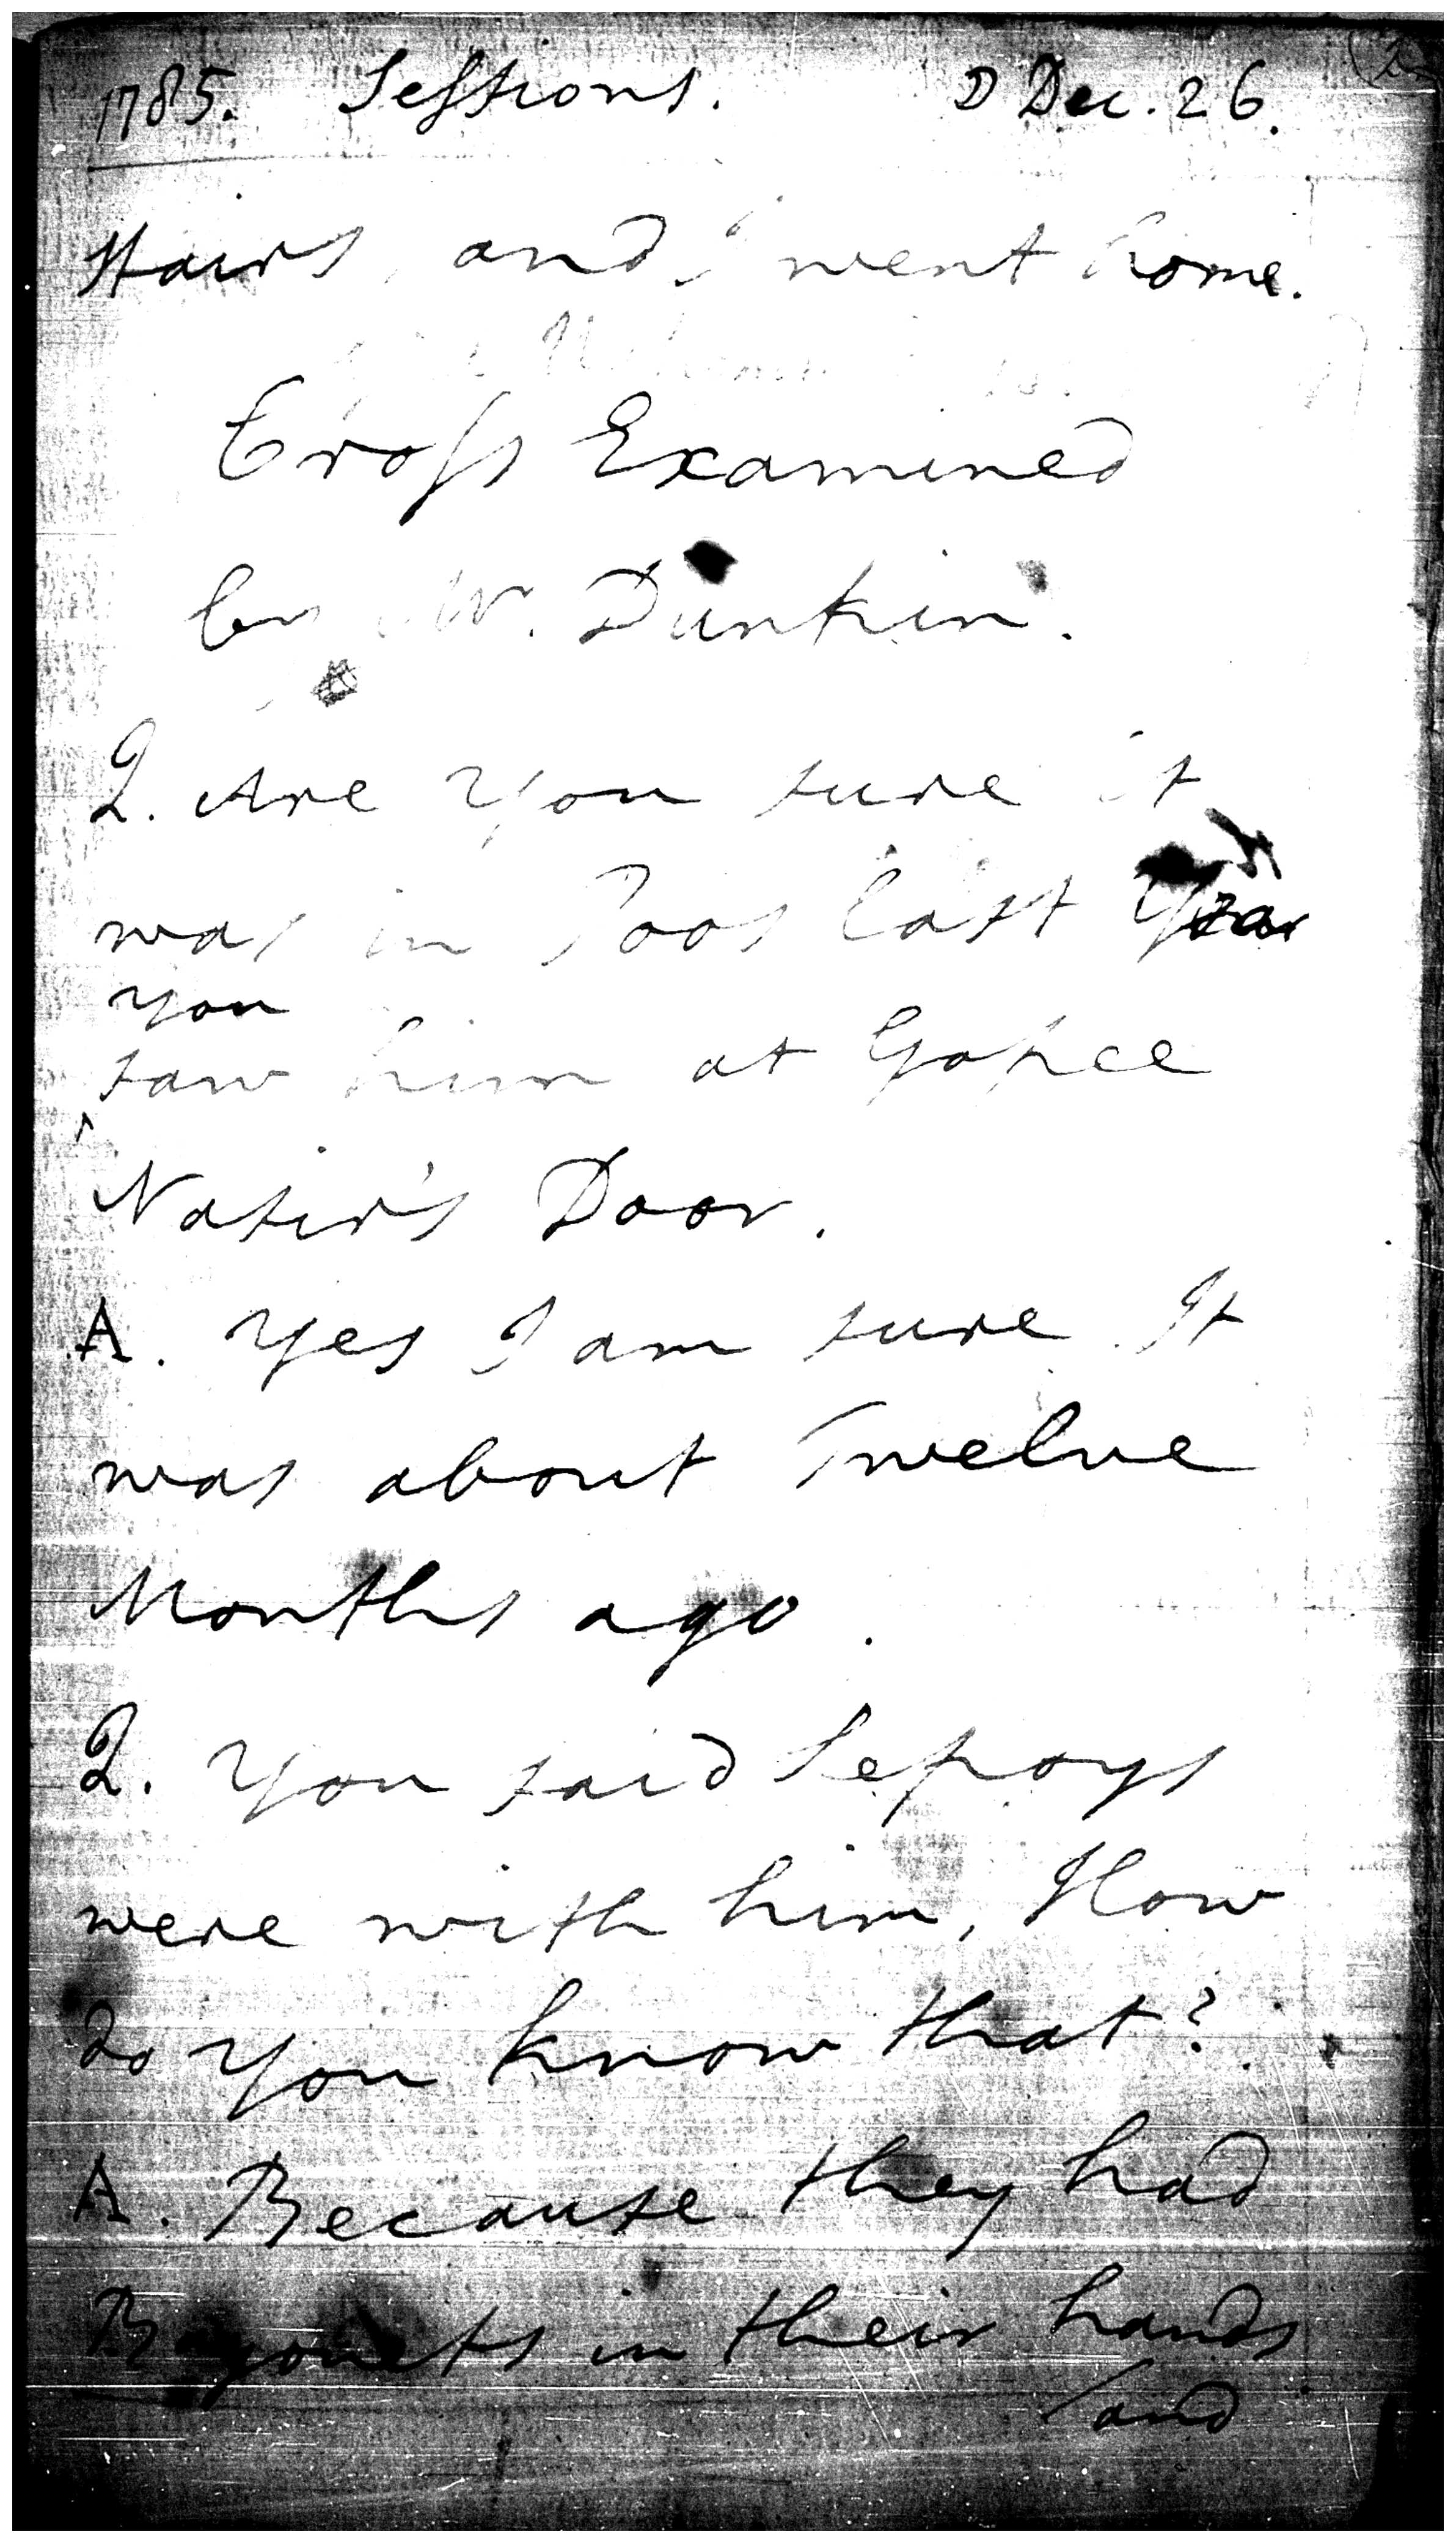 1785. Sessions. D Dec. 26.
Stairs, and went home.
Cross Examined
by Mr. Dunkin.
Q. Are you sure it
was in Poos last Year
you
saw him at Gopee
Nasir's Door.
A. Yes I am sure It
was about Twelve
Months ago.
Q. You said Sepoys
were with him, How
do you know that?
A. Because they had
Bayonets in their hands
/and